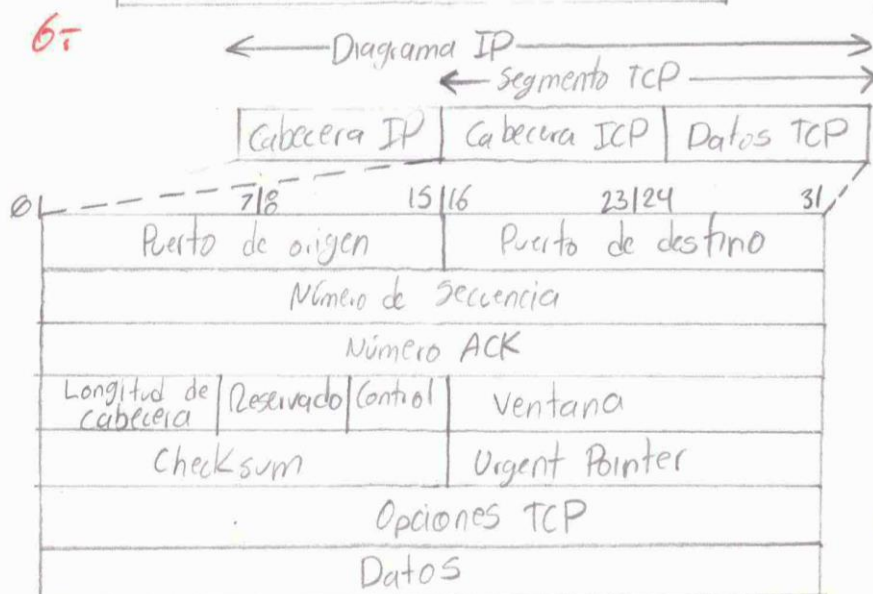 6-
Diagrama IP
Segmento TCP
Cabecera IP Cabecera ICP Datos TCP
0 7 8 15 16 23 24 31
Puerto de origen Puerto de destino
Número de Secuencia
Número ACK
Longitud de Reservado Control Ventana
cabecera
Checksum Urgent Pointer
Opciones TCP
Datos